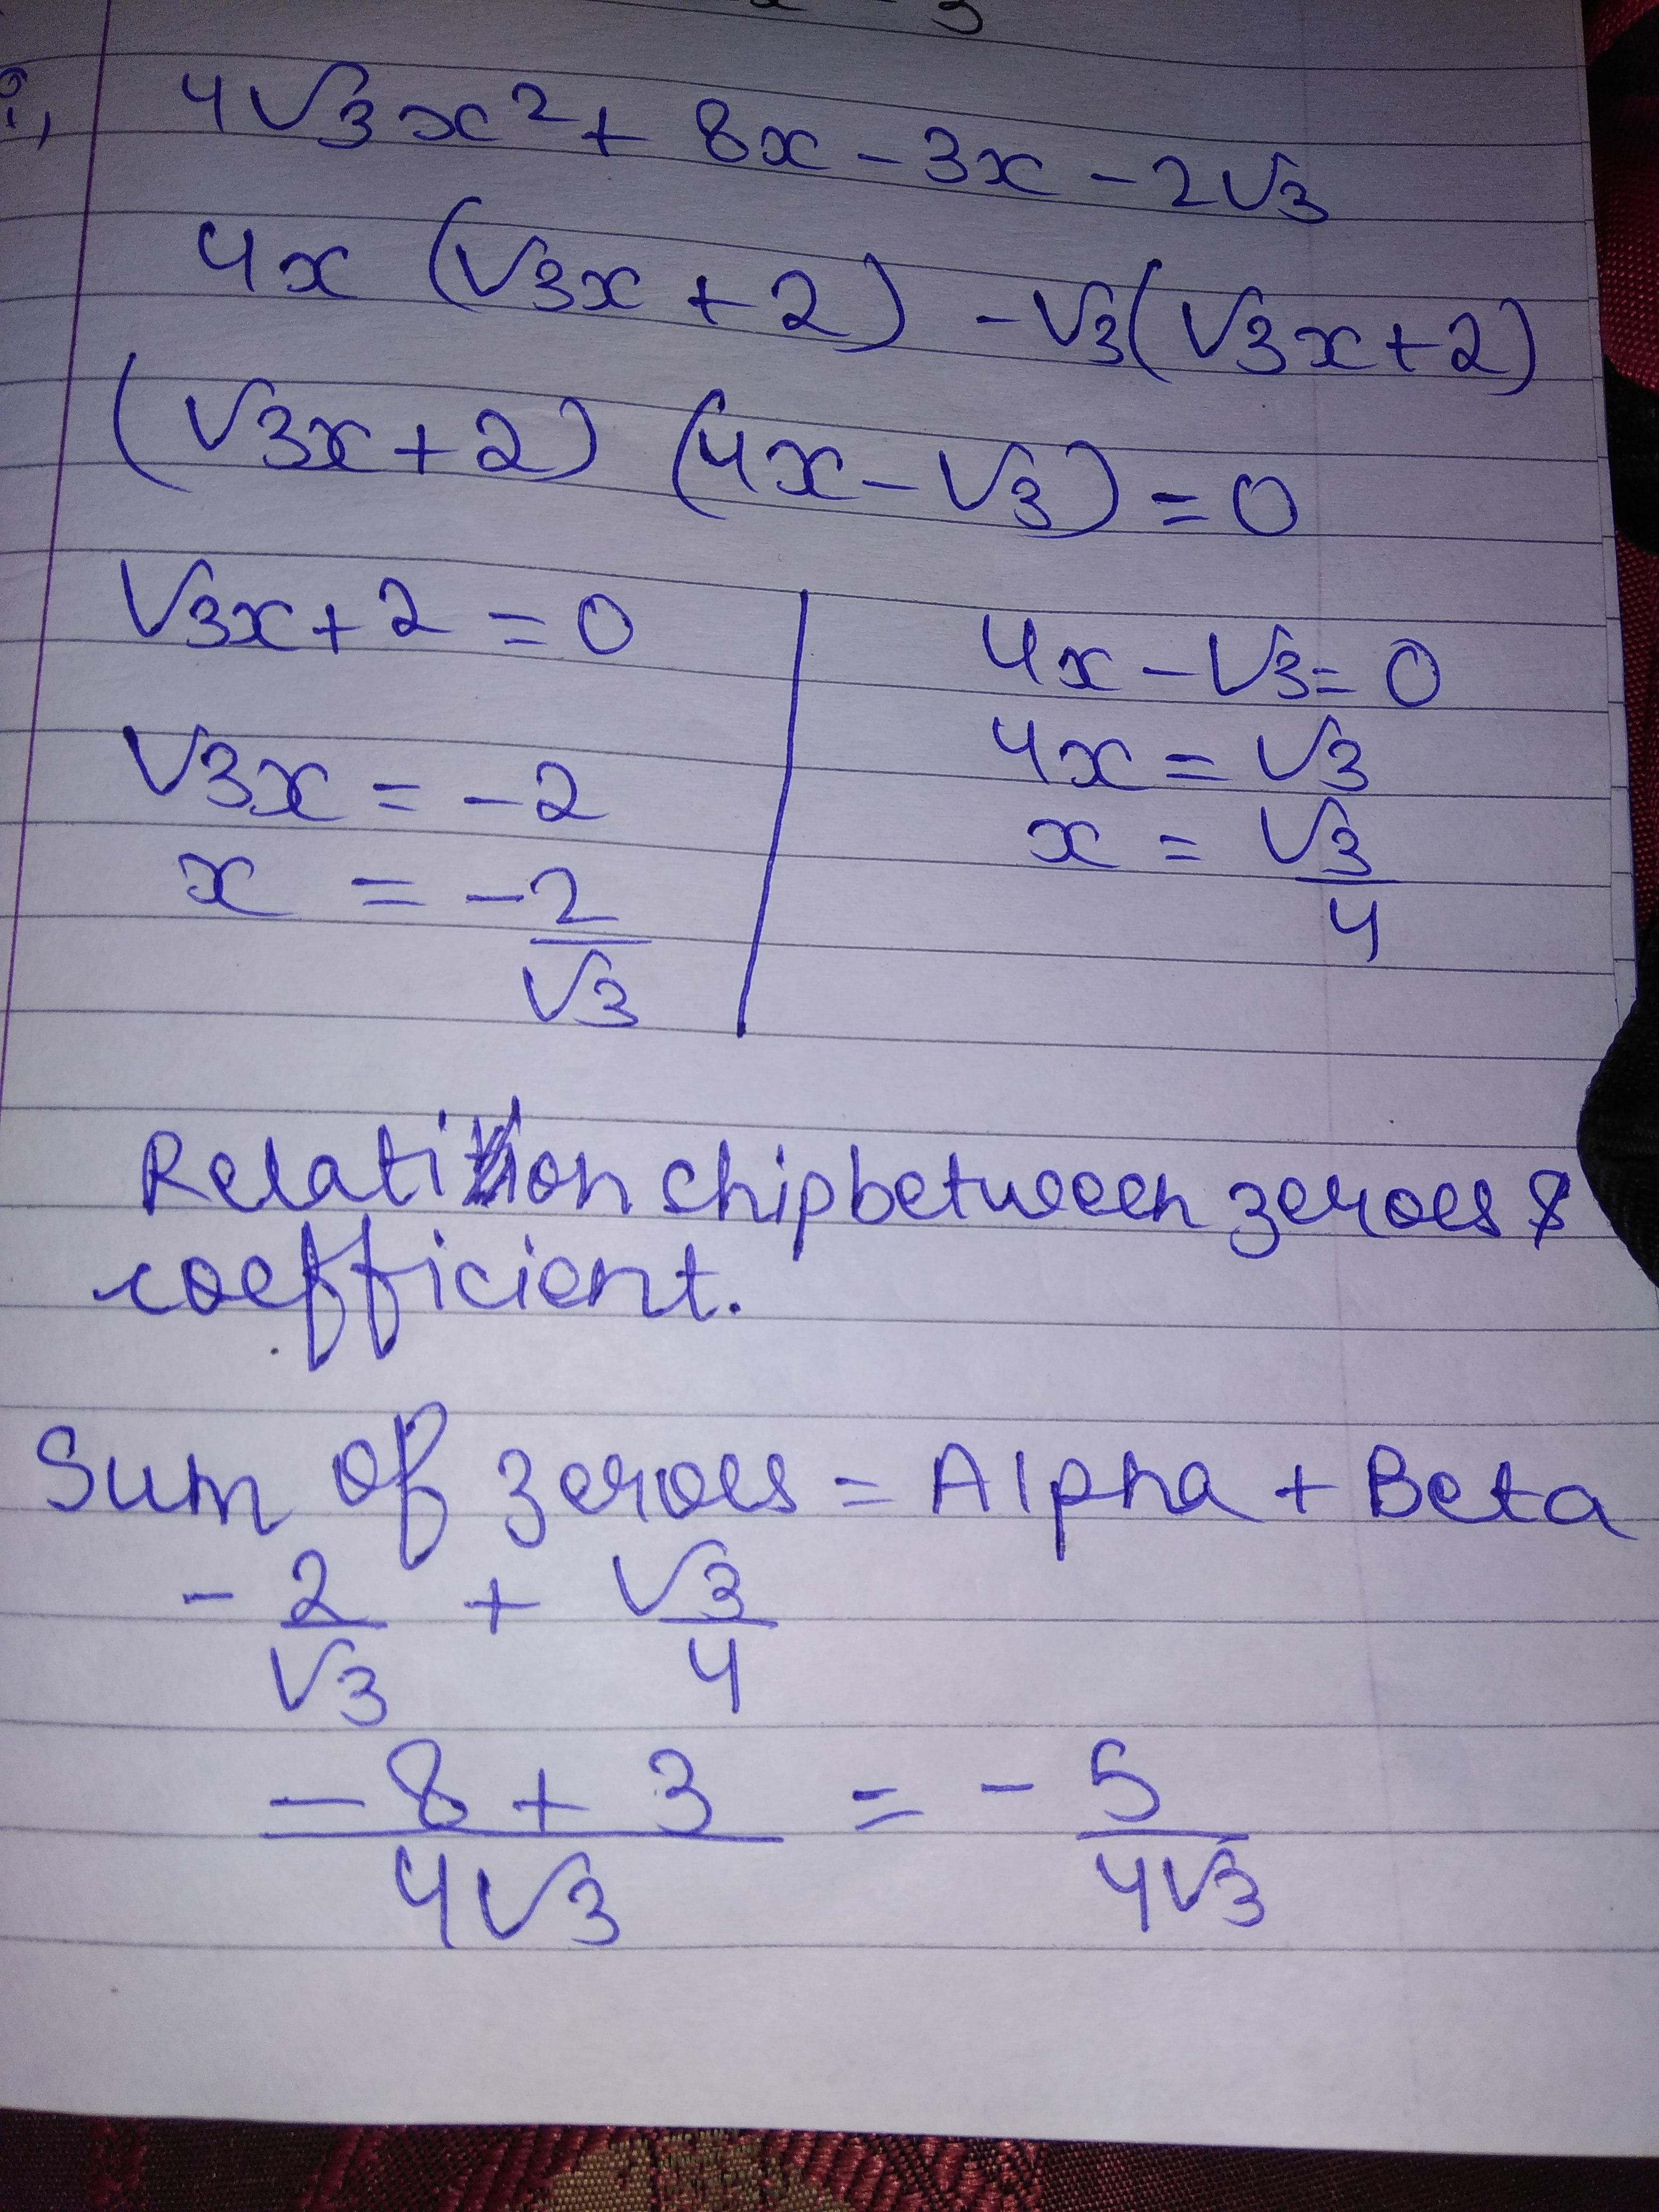 i,
4√3x² + 8x - 3x - 2√3
4x (√3x + 2) - √3(√3x+2)
(√3x+2) (4x-√3) = 0
√3x+2 = 0
√3x = -2
x = -2/√3
4x-√3 = 0
4x = √3
x = √3/4
Relation chip between zeroes &
coefficient.
Sum of zeroes = Alpha + Beta
- 2/√3 + √3/4
-8+3/4√3 = - 5/4√3